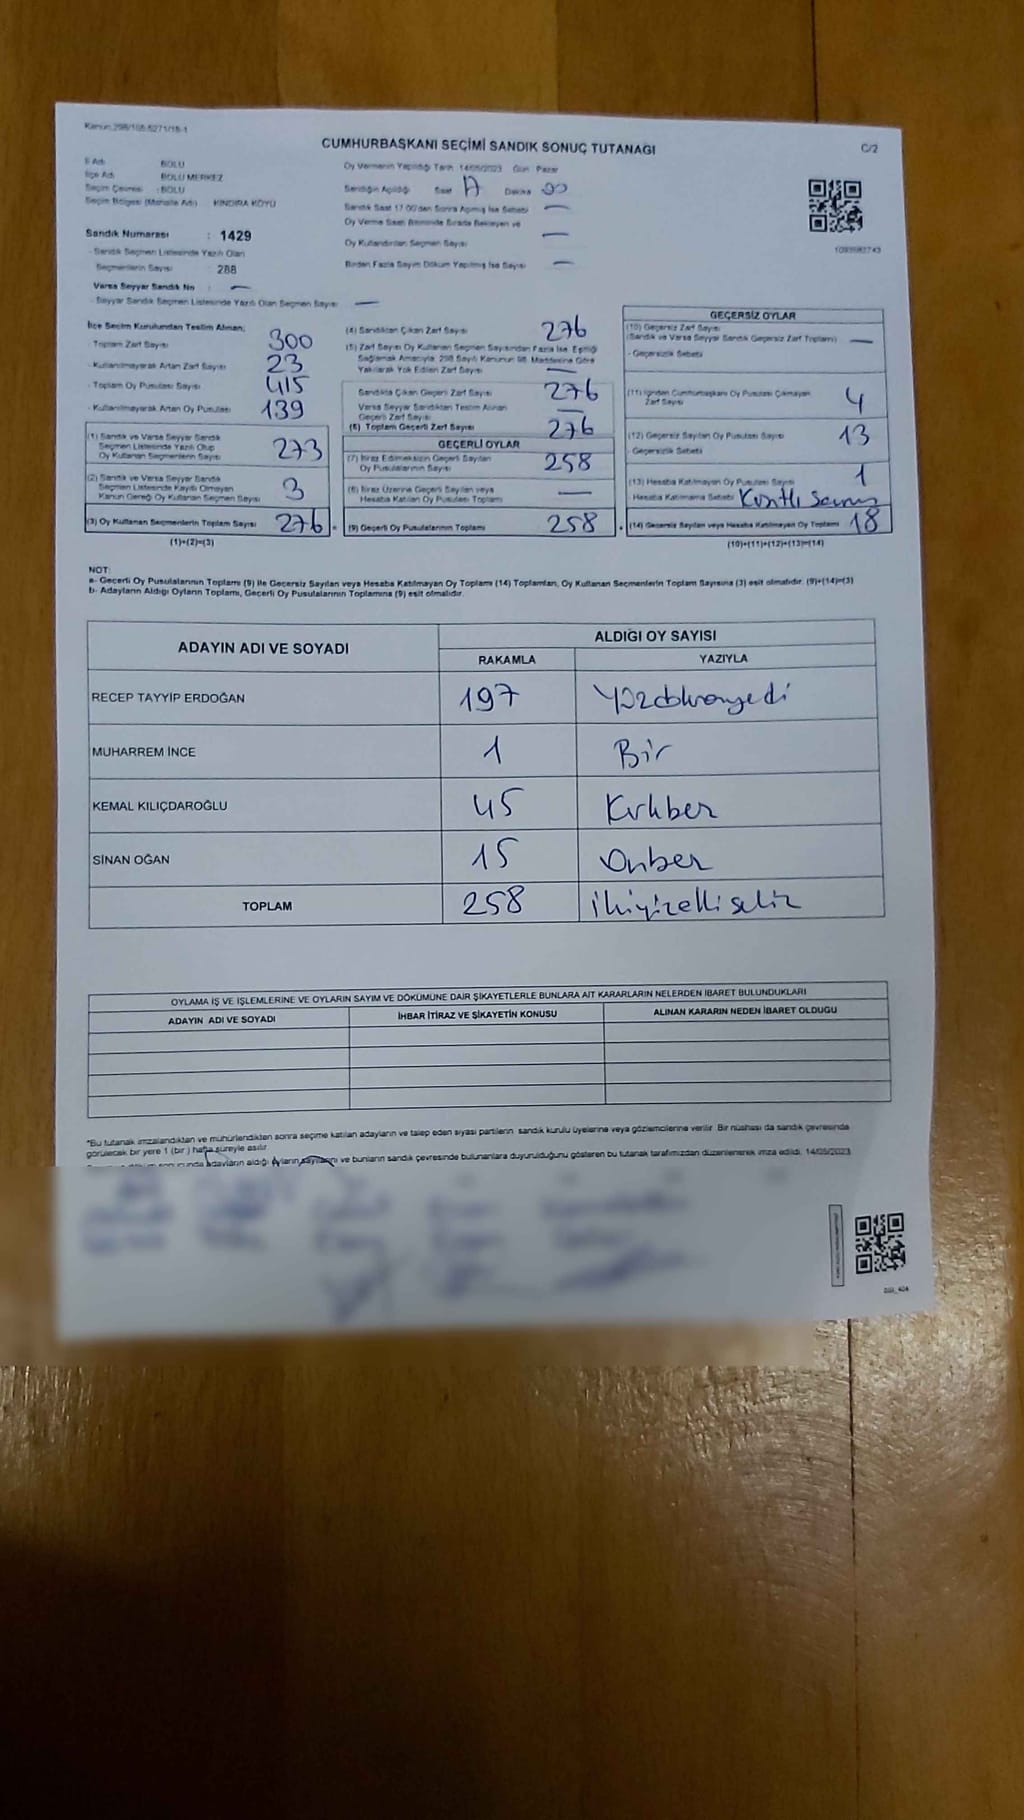 Kanun:298/105-5271/15-1
CUMHURBAŞKANI SEÇİMİ SANDIK SONUÇ TUTANAĞI
C/2
İl Adı : BOLU
İlçe Adı : BOLU MERKEZ
Seçim Çevresi : BOLU
Seçim Bölgesi (Mahalle Adı) : KINDIRA KÖYÜ
Oy Vermenin Yapıldığı Tarih: 14/05/2023 Gün: Pazar
Sandığın Açıldığı Saat 17 Dakika 00
Sandık Saat 17:00'den Sonra Açılmış İse Sebebi —
Oy Verme Saati Bitiminde Sırada Bekleyen ve
Oy Kullandırılan Seçmen Sayısı —
Birden Fazla Sayım Döküm Yapılmış İse Sayısı —
Sandık Numarası : 1429
- Sandık Seçmen Listesinde Yazılı Olan
Seçmenlerin Sayısı : 288
Varsa Seyyar Sandık No : —
- Seyyar Sandık Seçmen Listesinde Yazılı Olan Seçmen Sayısı: —
İlçe Seçim Kurulundan Teslim Alınan;
- Toplam Zarf Sayısı : 300
- Kullanılmayarak Artan Zarf Sayısı : 23
- Toplam Oy Pusulası Sayısı : 415
- Kullanılmayarak Artan Oy Pusulası : 139
(1) Sandık ve Varsa Seyyar Sandık
Seçmen Listesinde Yazılı Olup
Oy Kullanan Seçmenlerin Sayısı 273
(2) Sandık ve Varsa Seyyar Sandık
Seçmen Listesinde Kayıtlı Olmayan
Kanun Gereği Oy Kullanan Seçmen Sayısı 3
(3) Oy Kullanan Seçmenlerin Toplam Sayısı 276
(1)+(2)=(3)
(4) Sandıktan Çıkan Zarf Sayısı 276
(5) Zarf Sayısı Oy Kullanan Seçmen Sayısından Fazla İse, Eşitliği
Sağlamak Amacıyla 298 Sayılı Kanunun 98. Maddesine Göre
Yakılarak Yok Edilen Zarf Sayısı —
Sandıkta Çıkan Geçerli Zarf Sayısı 276
Varsa Seyyar Sandıktan Teslim Alınan
Geçerli Zarf Sayısı —
(6) Toplam Geçerli Zarf Sayısı 276
GEÇERLİ OYLAR
(7) İtiraz Edilmeksizin Geçerli Sayılan
Oy Pusulalarının Sayısı 258
(8) İtiraz Üzerine Geçerli Sayılan veya
Hesaba Katılan Oy Pusulası Toplamı —
(9) Geçerli Oy Pusulalarının Toplamı 258
GEÇERSİZ OYLAR
(10) Geçersiz Zarf Sayısı
(Sandık ve Varsa Seyyar Sandık Geçersiz Zarf Toplamı) —
- Geçersizlik Sebebi
(11) İçinden Cumhurbaşkanı Oy Pusulası Çıkmayan
Zarf Sayısı 4
(12) Geçersiz Sayılan Oy Pusulası Sayısı 13
- Geçersizlik Sebebi
(13) Hesaba Katılmayan Oy Pusulası Sayısı 1
Hesaba Katılmama Sebebi
(14) Geçersiz Sayılan veya Hesaba Katılmayan Oy Toplamı 18
(10)+(11)+(12)+(13)=(14)
NOT:
a- Geçerli Oy Pusulalarının Toplamı (9) ile Geçersiz Sayılan veya Hesaba Katılmayan Oy Toplamı (14) Toplamları, Oy Kullanan Seçmenlerin Toplam Sayısına (3) eşit olmalıdır. (9)+(14)=(3)
b- Adayların Aldığı Oyların Toplamı, Geçerli Oy Pusulalarının Toplamına (9) eşit olmalıdır.
ADAYIN ADI VE SOYADI
ALDIĞI OY SAYISI
RAKAMLA YAZIYLA
RECEP TAYYİP ERDOĞAN 197 Yüzdoksanyedi
MUHARREM İNCE 1 Bir
KEMAL KILIÇDAROĞLU 45 Kırkbeş
SİNAN OĞAN 15 Onbeş
TOPLAM 258 ikiyüzellisekiz
OYLAMA İŞ VE İŞLEMLERİNE VE OYLARIN SAYIM VE DÖKÜMÜNE DAİR ŞİKAYETLERLE BUNLARA AİT KARARLARIN NELERDEN İBARET BULUNDUKLARI
ADAYIN ADI VE SOYADI İHBAR İTİRAZ VE ŞİKAYETİN KONUSU ALINAN KARARIN NEDEN İBARET OLDUĞU
*Bu tutanak imzalandıktan ve mühürlendikten sonra seçime katılan adayların ve talep eden siyasi partilerin, sandık kurulu üyelerine veya gözlemcilerine verilir. Bir nüshası da sandık çevresinde
görülecek bir yere 1 (bir) hafta süreyle asılır.
sonucunda adayların aldığı oyların sayılarını ve bunların sandık çevresinde bulunanlara duyurulduğunu gösteren bu tutanak tarafımızdan düzenlenerek imza edildi. 14/05/2023